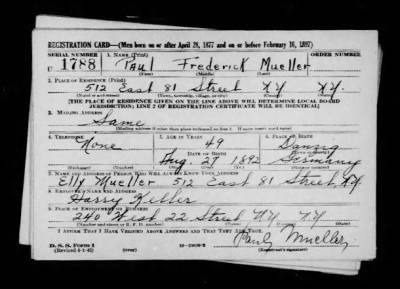 REGISTRATION CARD—(Men born on or after April 28, 1877 and on or before February 16, 1897)
SERIAL NUMBER 1. NAME (Print) ORDER NUMBER
U 1788 Paul Frederick Mueller
(First) (Middle) (Last)
2. PLACE OF RESIDENCE (Print)
512 East 81 Street N.Y. N.Y.
(Number and street) (Town, township, village, or city) (County) (State)
[THE PLACE OF RESIDENCE GIVEN ON THE LINE ABOVE WILL DETERMINE LOCAL BOARD
JURISDICTION; LINE 2 OF REGISTRATION CERTIFICATE WILL BE IDENTICAL]
3. MAILING ADDRESS
Same
(Mailing address if other than place indicated on line 2. If same insert word same)
4. TELEPHONE 5. AGE IN YEARS 6. PLACE OF BIRTH
None 49 Danzig
DATE OF BIRTH (Town or county)
Aug. 27 1892 Germany
(Exchange) (Number) (Mo.) (Day) (Yr.) (State or country)
7. NAME AND ADDRESS OF PERSON WHO WILL ALWAYS KNOW YOUR ADDRESS
Mueller 512 East 81 Street N.Y.
8. EMPLOYER'S NAME AND ADDRESS
Harry
9. PLACE OF EMPLOYMENT OR BUSINESS
240 West 22 Street N.Y. N.Y.
(Number and street or R. F. D. number) (Town) (County) (State)
I AFFIRM THAT I HAVE VERIFIED ABOVE ANSWERS AND THAT THEY ARE TRUE.
D. S. S. Form 1
(Revised 4-1-42) Paul Mueller
(Registrant's signature)